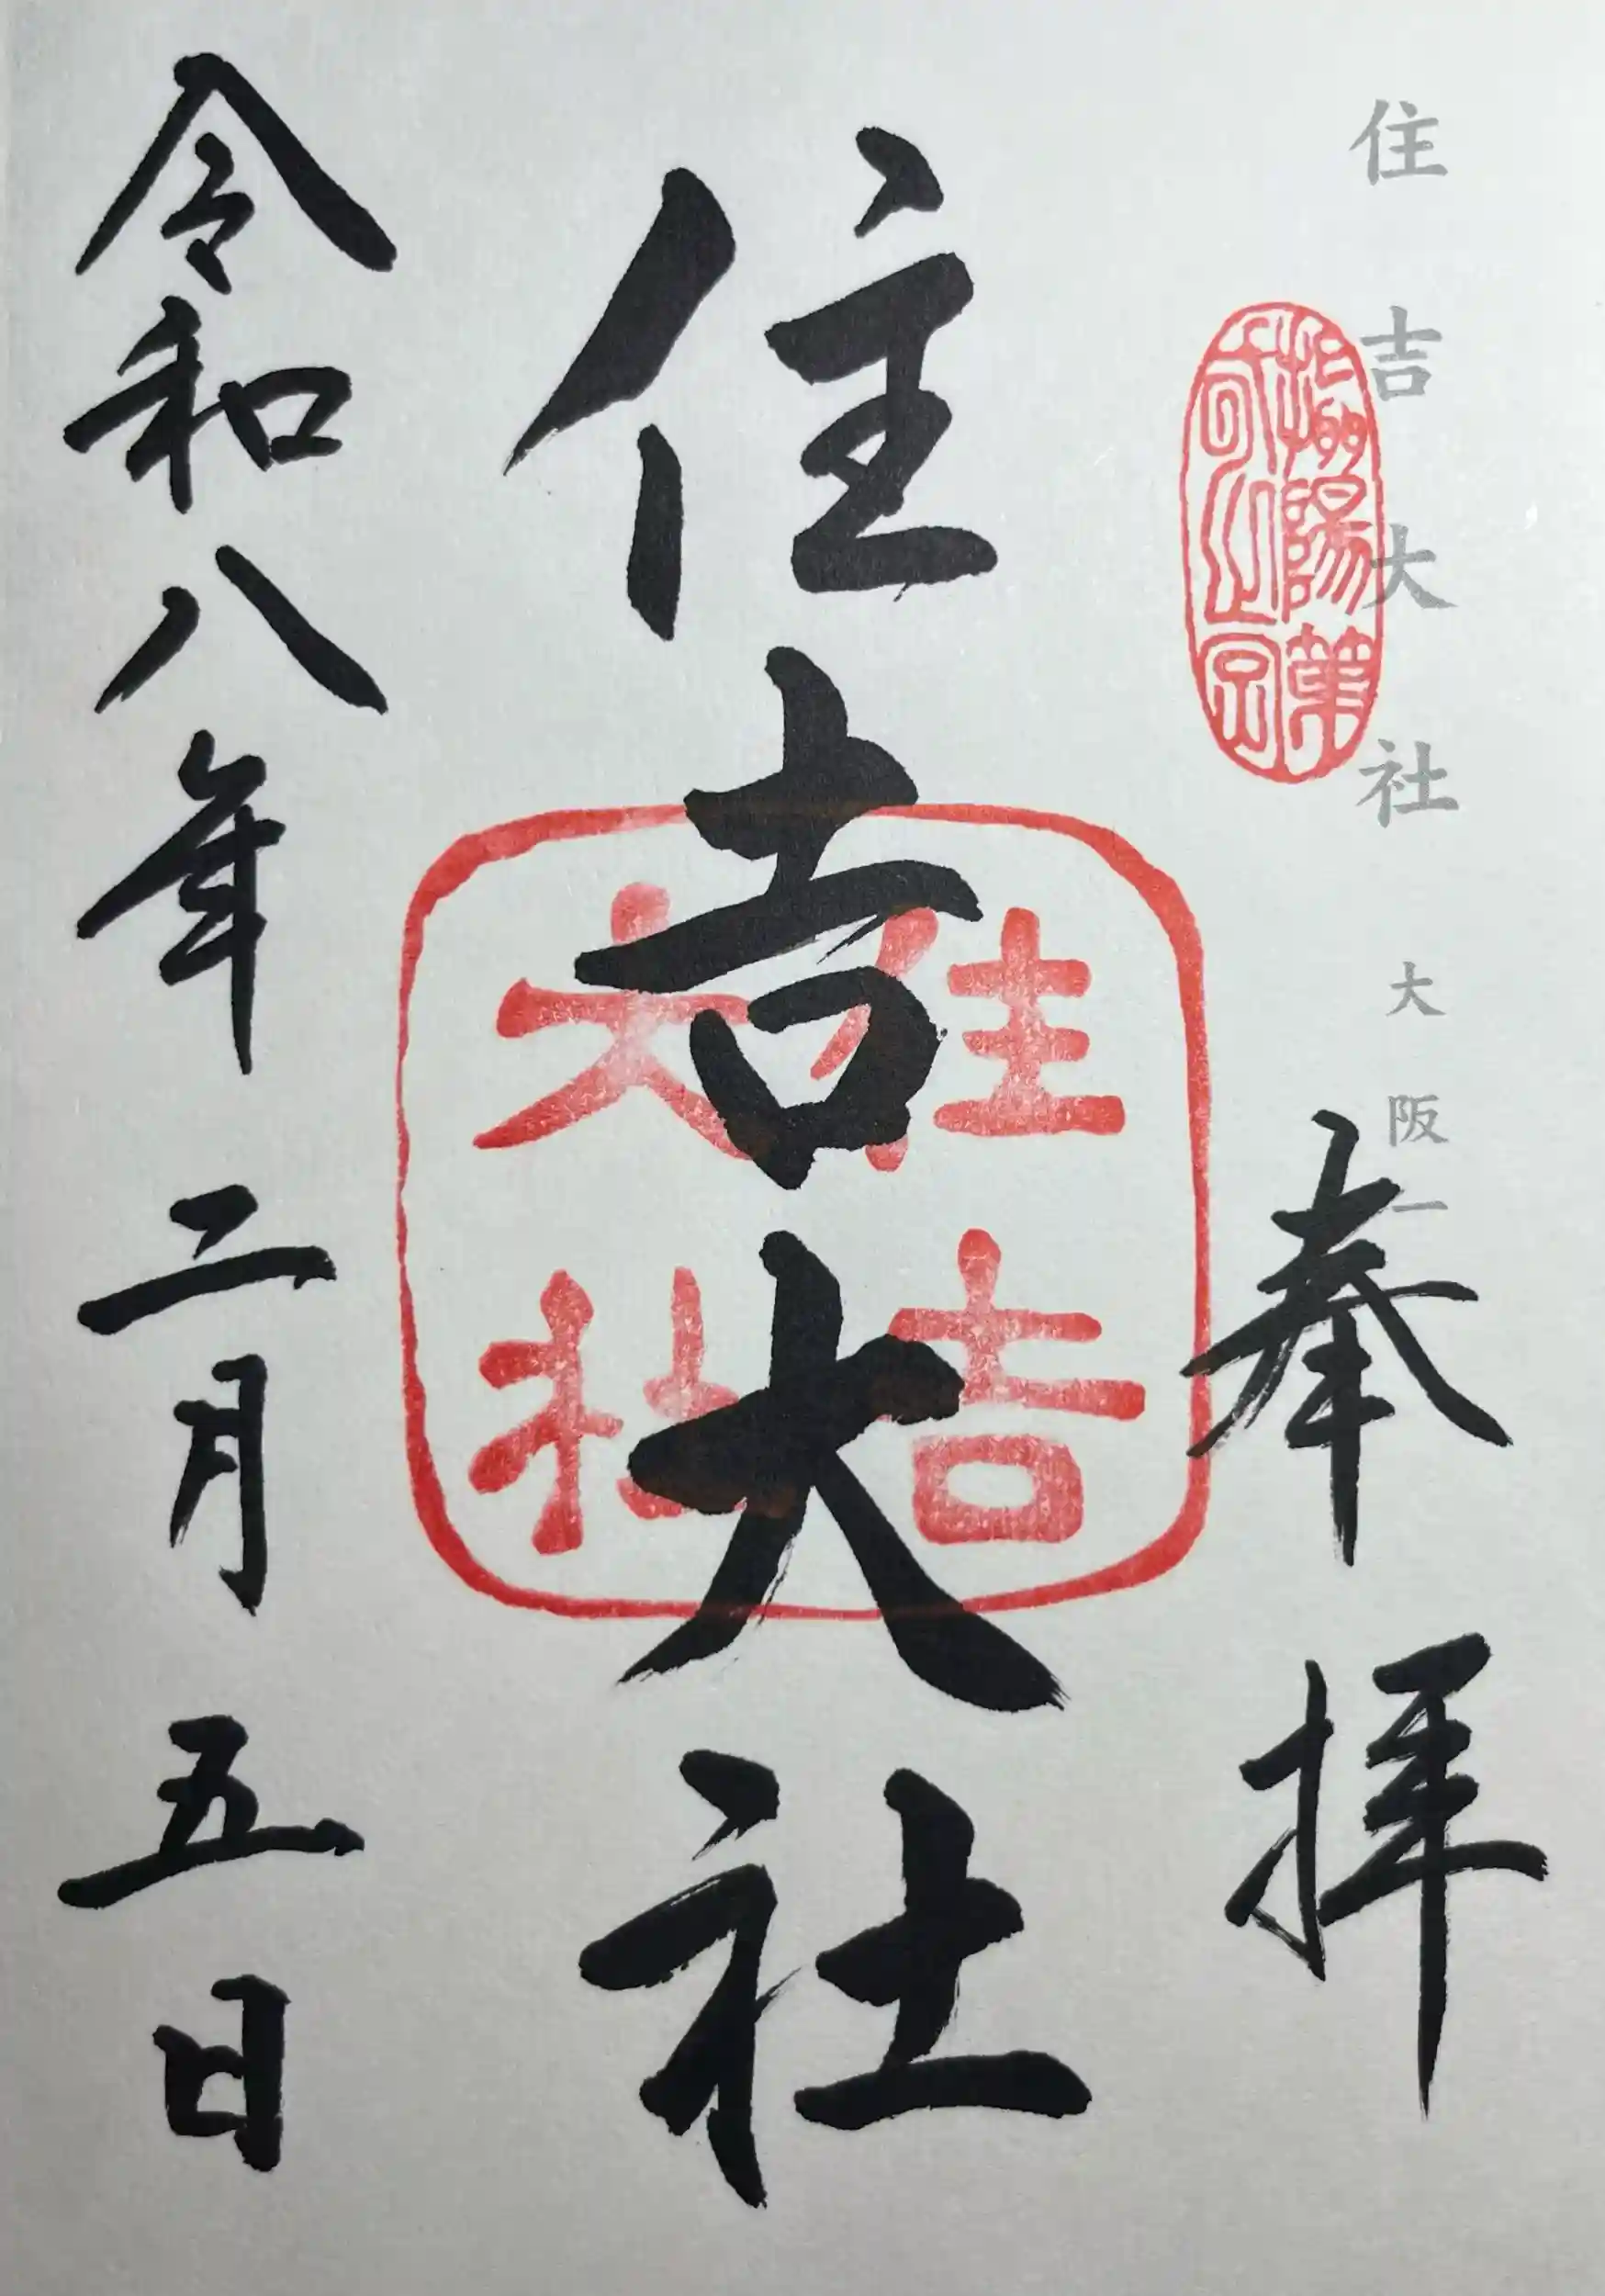 住吉大社 大阪一
奉拝
摂陽第
住吉大社
住吉
大社
令和八年二月五日